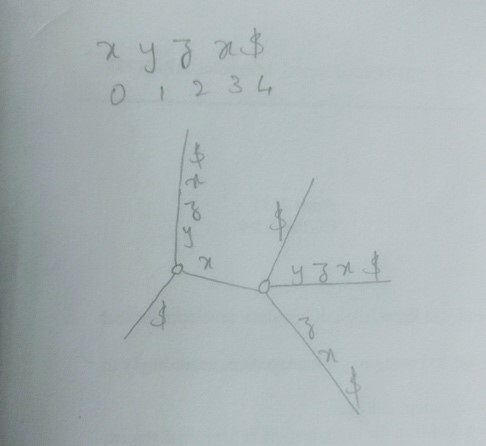 x y z x $
0 1 2 3 4
$
x
z
y
x
$
$
y z x $
z
x
$